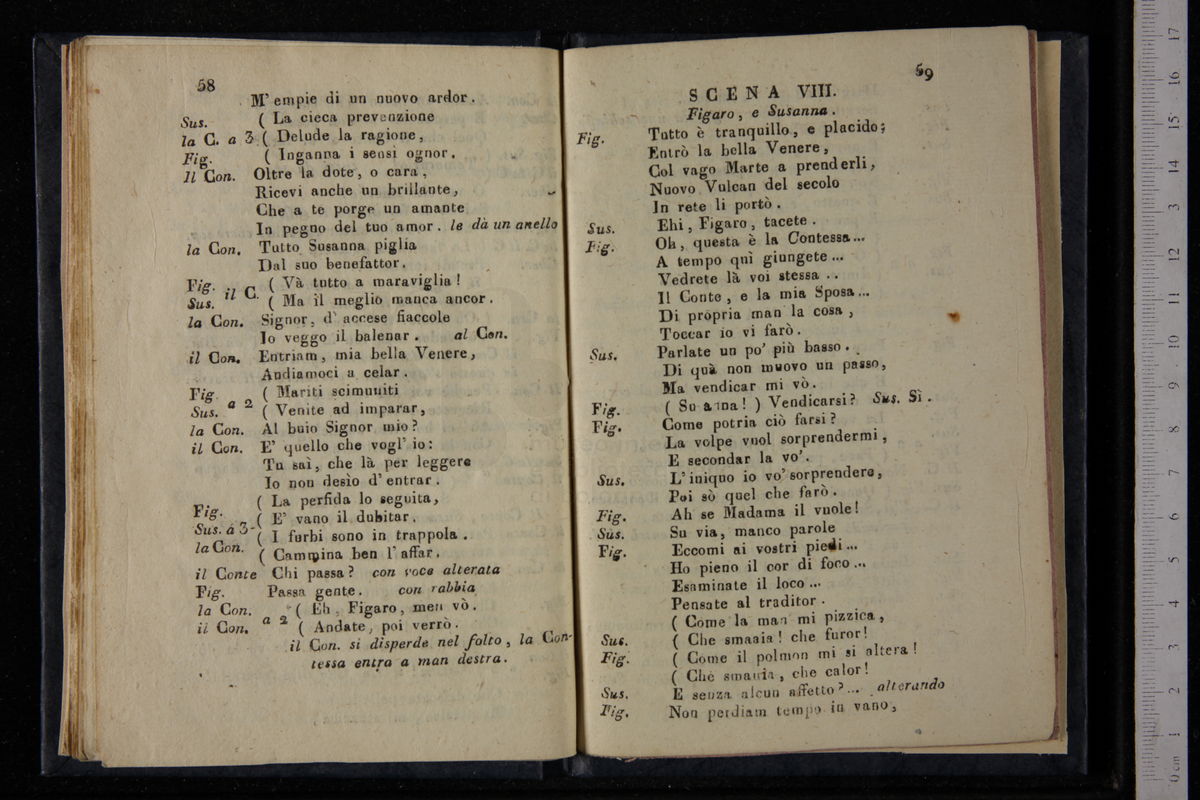 58
M' empie di un nuovo ardor.
Sus. ( La cieca prevenzione
la C. a 3 ( Delude la ragione,
Fig. ( Inganna i sensi ognor.
Il Con. Oltre la dote, o cara,
Ricevi anche un brillante,
Che a te porge un amante
In pegno del tuo amor. le dà un anello
la Con. Tutto Susanna piglia
Dal suo benefattor.
Fig. ( Và tutto a maraviglia!
Sus. il C. ( Ma il meglio manca ancor.
la Con. Signor, d' accese fiaccole
Io veggo il balenar. al Con.
il Con. Entriam, mia bella Venere,
Andiamoci a celar.
Fig. ( Mariti scimuniti
Sus. a 2 ( Venite ad imparar,
la Con. Al buio Signor mio?
il Con. E' quello che vogl' io:
Tu sai, che là per leggere
Io non desio d' entrar.
( La perfida lo seguita,
Fig. ( E' vano il dubitar.
Sus. a 3 ( I furbi sono in trappola.
la Con. ( Cammina ben l' affar.
il Conte Chi passa? con voce alterata
Fig. Passa gente. con rabbia
la Con. ( Eh, Figaro, men vò.
il Con. a 2 ( Andate, poi verrò.
il Con. si disperde nel folto, la Con-
tessa entra a man destra.
59
SCENA VIII.
Figaro, e Susanna.
Fig. Tutto è tranquillo, e placido;
Entrò la bella Venere,
Col vago Marte a prenderli,
Nuovo Vulcan del secolo
In rete li portò.
Sus. Ehi, Figaro, tacete.
Fig. Oh, questa è la Contessa...
A tempo quì giungete...
Vedrete là voi stessa..
Il Conte, e la mia Sposa...
Di propria man la cosa,
Toccar io vi farò.
Sus. Parlate un po' più basso.
Di quà non muovo un passo,
Ma vendicar mi vò.
Fig. ( Susanna! ) Vendicarsi? Sus. Sì.
Fig. Come potria ciò farsi?
La volpe vuol sorprendermi,
E secondar la vo'.
Sus. L' iniquo io vo' sorprendere,
Poi sò quel che farò.
Fig. Ah se Madama il vuole!
Sus. Su via, manco parole
Fig. Eccomi ai vostri piedi...
Ho pieno il cor di foco...
Esaminate il loco...
Pensate al traditor.
( Come la man mi pizzica,
Sus. ( Che smania! che furor!
Fig. ( Come il polmon mi si altera!
( Che smania, che calor!
Sus. E senza alcun affetto?... alterando
Fig. Non perdiam tempo in vano,